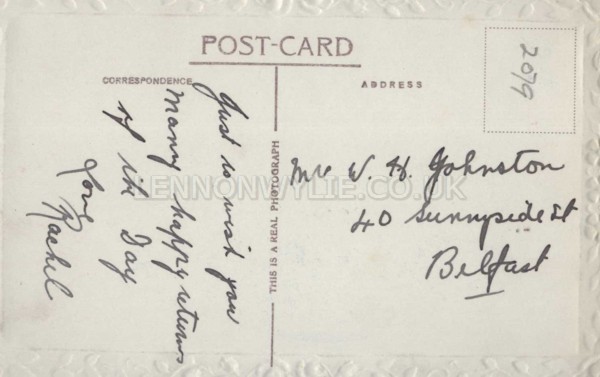 POST-CARD
CORRESPONDENCE
ADDRESS
2079
Just to wish you
Many happy returns
of the Day
love
Rachel
THIS IS A REAL PHOTOGRAPH
Mr W. H. Johnston
40 Sunnyside St
Belfast
LENNONWYLIE.CO.UK